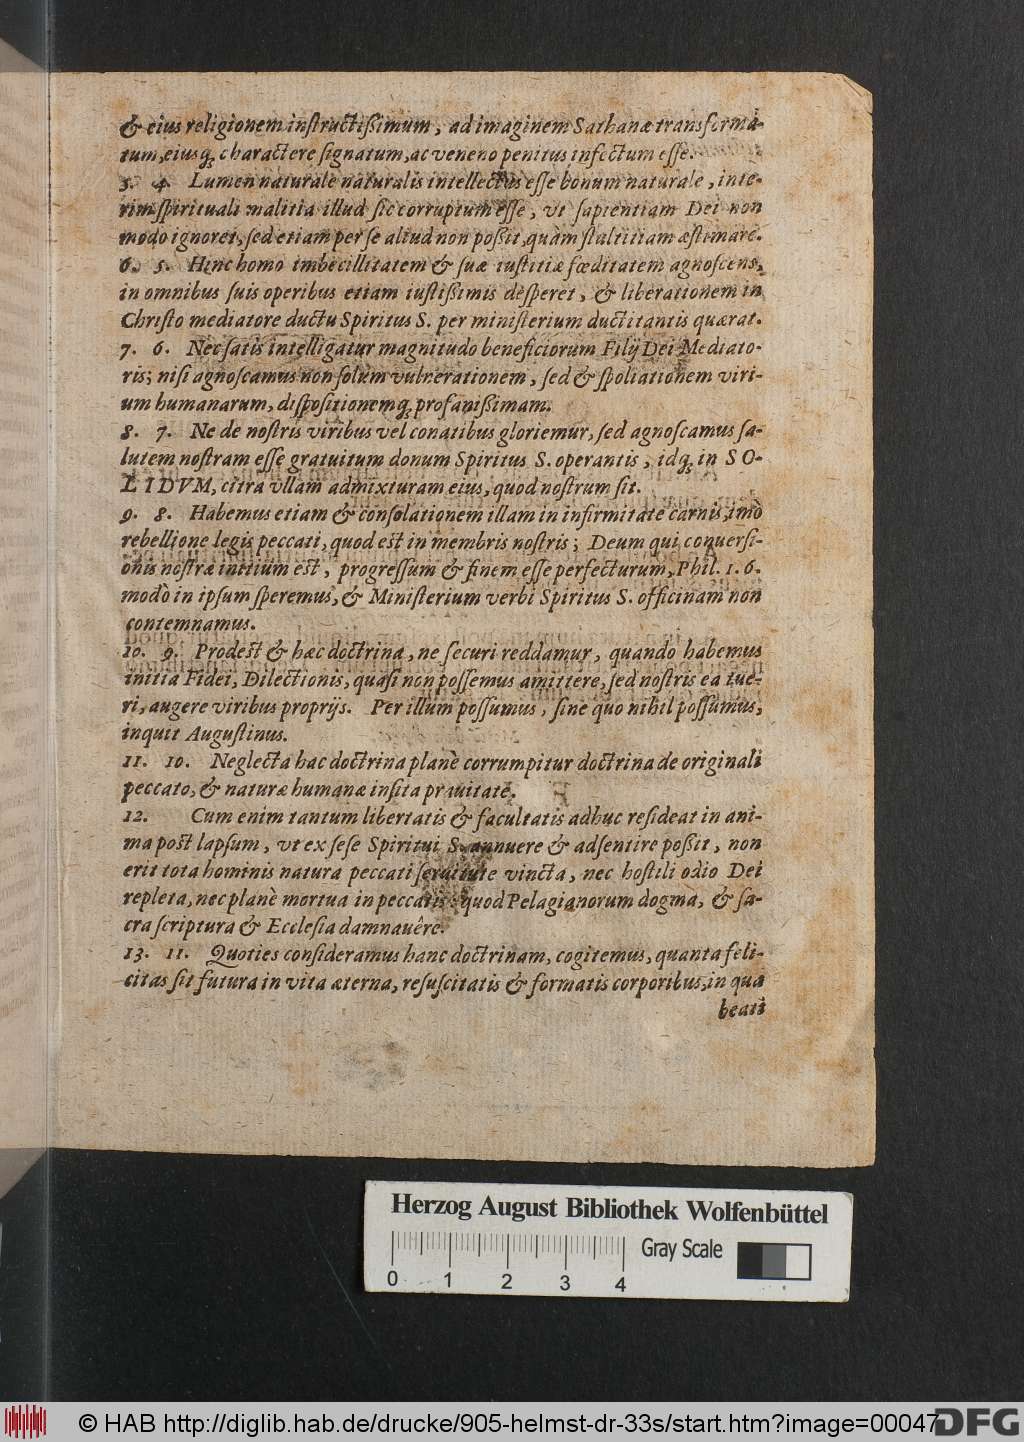 & eius religionem instructißimum, ad imaginem Sathanæ transforma-
tum, eiusq; charactere signatum, ac veneno penitus infectum esse.
5. 4. Lumen naturale naturalis intellectus esse bonum naturale, inte-
rim spirituali malitia illud sic corruptum esse, vt sapientiam Dei non
modo ignoret, sed etiam per se aliud non poßit, quàm stultitiam æstimare.
6. 5. Hinc homo imbecillitatem & suæ iustitiæ fœditatem agnoscens,
in omnibus suis operibus etiam iustißimis desperet, & liberationem in
Christo mediatore ductu Spiritus S. per ministerium ductitantis quærat.
7. 6. Nec satis intelligatur magnitudo beneficiorum Filij Dei Mediato-
ris; nisi agnoscamus non solùm vulnerationem, sed & spoliationem viri-
um humanarum, dispositionemq; profanißimam.
8. 7. Ne de nostris viribus vel conatibus gloriemur, sed agnoscamus sa-
lutem nostram esse gratuitum donum Spiritus S. operantis, idq; in SO-
LIDVM, citra vllam admixturam eius, quod nostrum sit.
9. 8. Habemus etiam & consolationem illam in infirmitate carnis, imò
rebellione legis peccati, quod est in membris nostris; Deum qui conuersi-
onis nostræ initium est, progressum & finem esse perfecturum, Phil. 1. 6.
modò in ipsum speremus, & Ministerium verbi Spiritus S. officinam non
contemnamus.
10. 9. Prodest & hæc doctrina, ne securi reddamur, quando habemus
initia Fidei, Dilectionis, quasi non possemus amittere, sed nostris ea tue-
ri, augere viribus proprijs. Per illum possumus, sine quo nihil possumus,
inquit Augustinus.
11. 10. Neglecta hac doctrina planè corrumpitur doctrina de originali
peccato, & naturæ humanæ insita prauitate.
12. Cum enim tantum libertatis & facultatis adhuc resideat in ani-
ma post lapsum, vt ex sese Spiritui S. annuere & adsentire poßit, non
erit tota hominis natura peccati seruitute vincta, nec hostili odio Dei
repleta, nec planè mortua in peccatis: quod Pelagianorum dogma, & sa-
cra scriptura & Ecclesia damnauêre.
13. 11. Quoties consideramus hanc doctrinam, cogitemus, quanta feli-
citas sit futura in vita æterna, resuscitatis & formatis corporibus, in qua
beati
Herzog August Bibliothek Wolfenbüttel
Gray Scale
0 1 2 3 4
© HAB http://diglib.hab.de/drucke/905-helmst-dr-33s/start.htm?image=00047
DFG